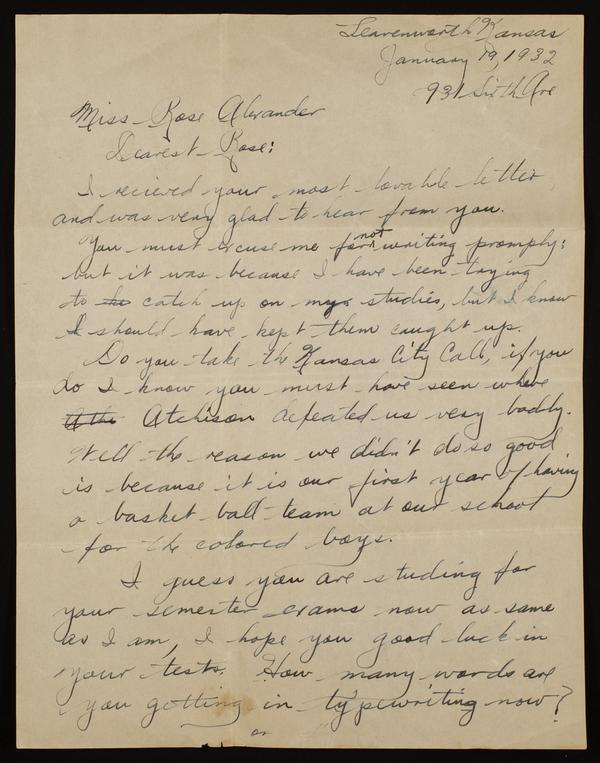 Leavenworth Kansas
January 19, 1932
931 Sixth Ave
Miss Rose Alexander
Dearest Rose:
I recieved your most lovable letter,
and was very glad to hear from you.
You must excuse me for not writing promply;
but it was because I have been trying
to catch up on my studies, but I know
I should have kept them caught up.
Do you take the Kansas City Call, if you
do I know you must have seen where
Atchison defeated us very badly.
Well the reason we didn't do so good
is because it is our first year of having
a basket ball team at our school
for the colored boys.
I guess you are studing for
your semester exams now as same
as I am, I hope you good luck in
your tests. How many words are
you getting in typewriting now?